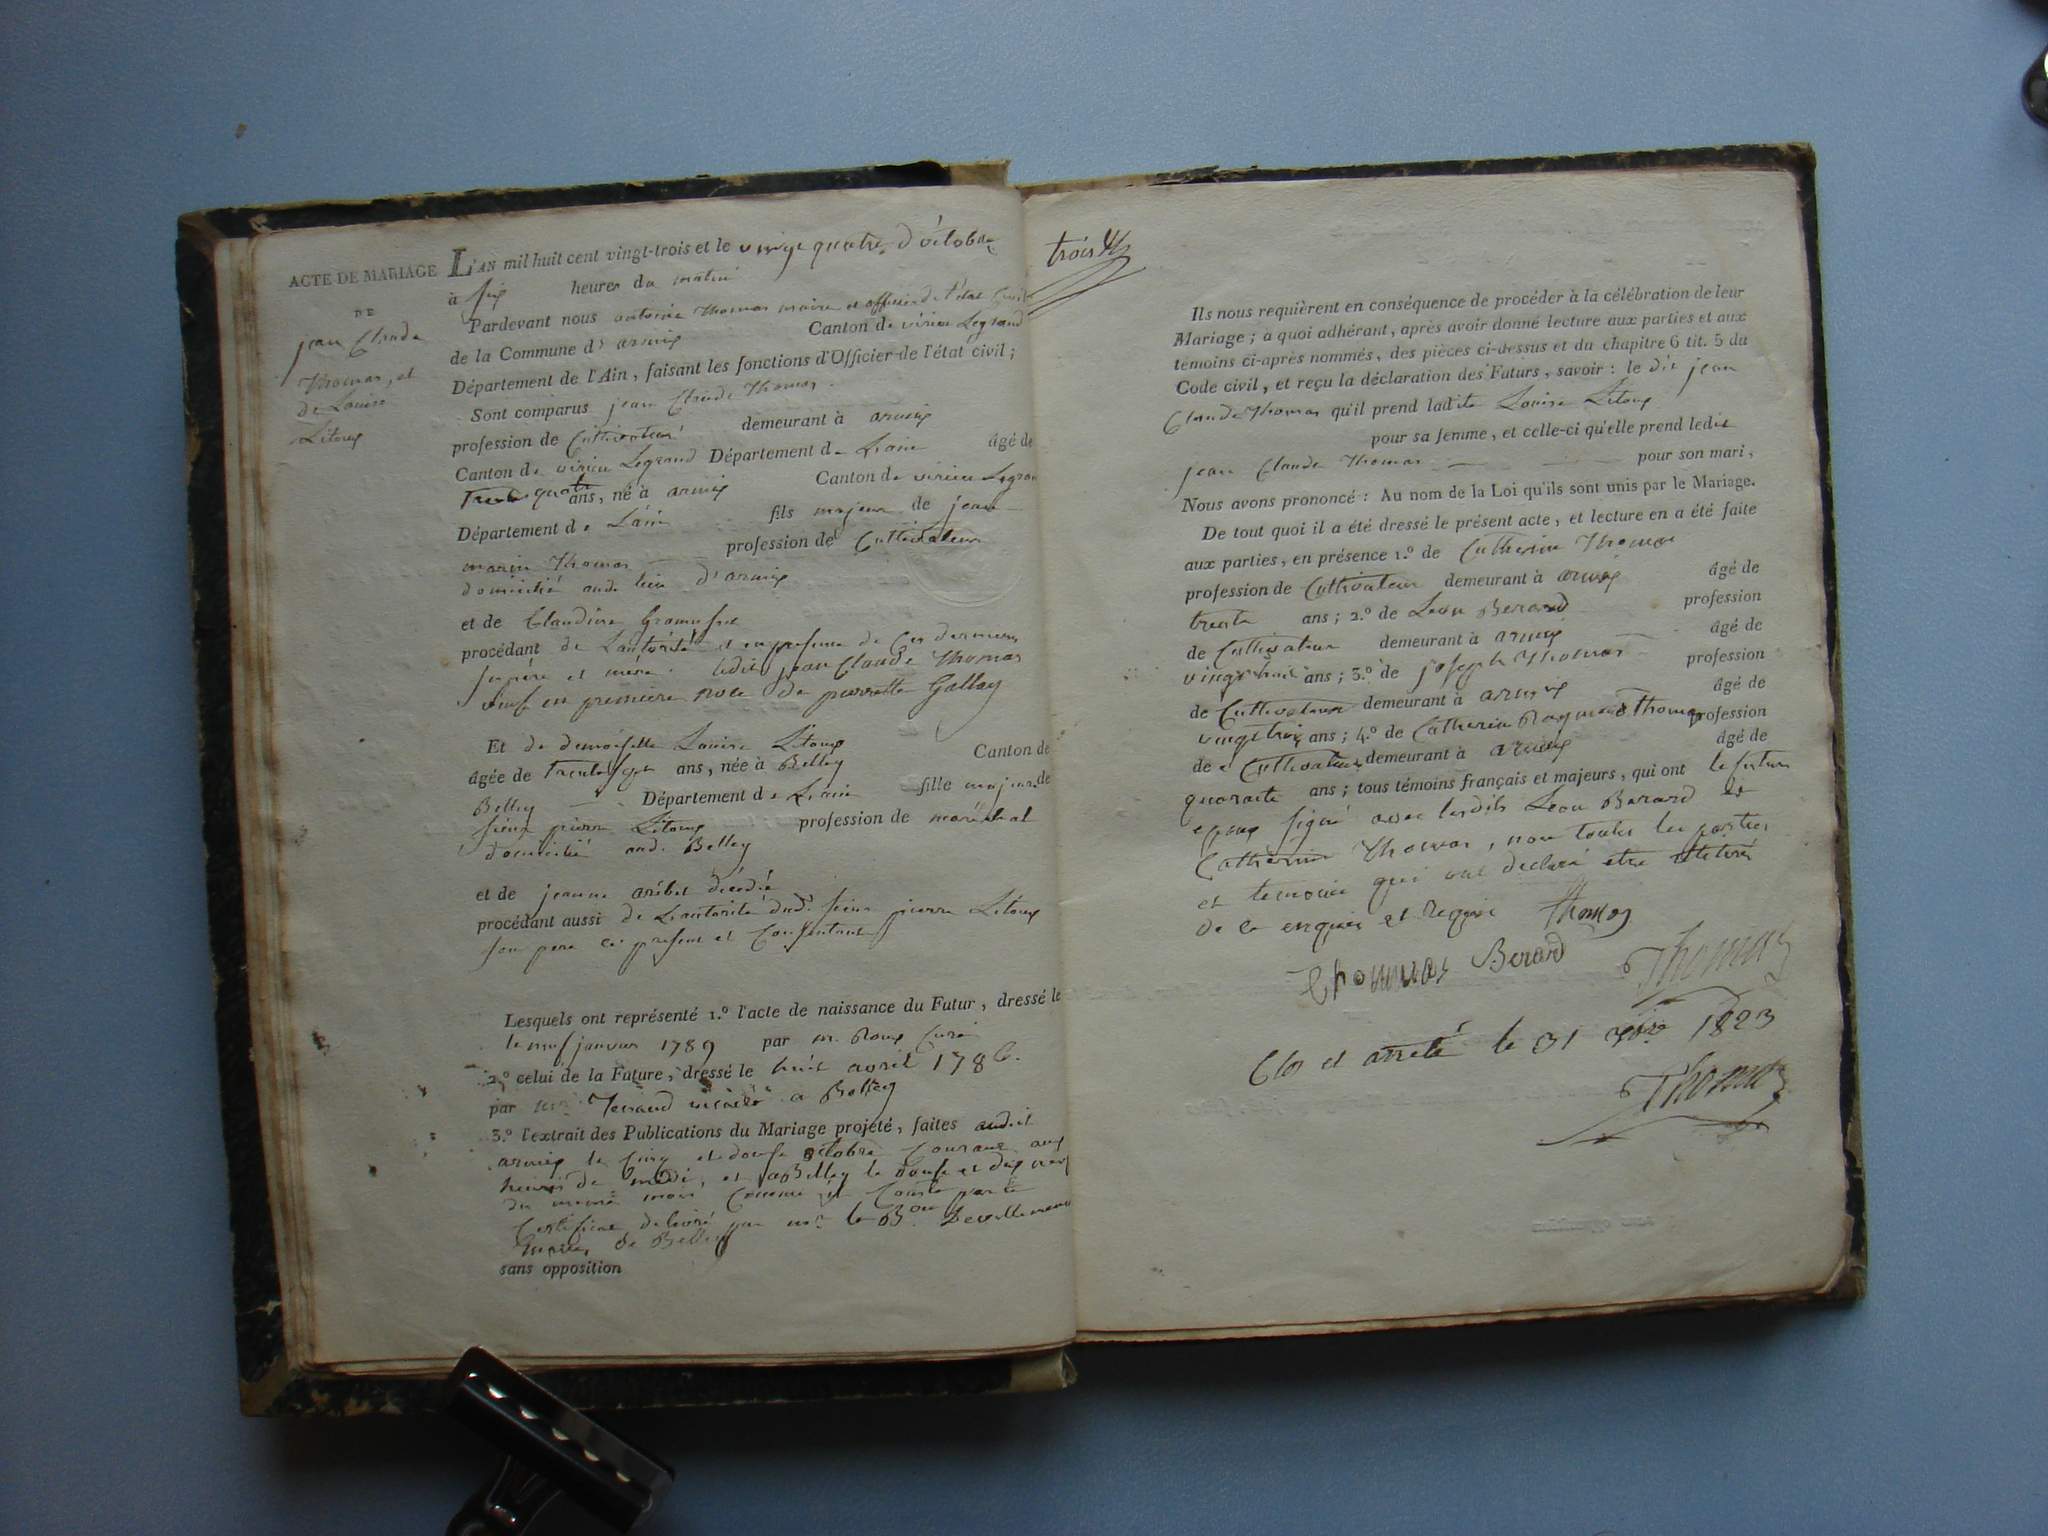 ACTE DE MARIAGE
DE
jean Claude
Thomas, et
de Louise
Litoux
L'AN mil huit cent vingt-trois et le vingt quatre d'octobre
à six heures du matin
Pardevant nous antoine Thomas maire et officier de l'état civil
de la Commune d' armix Canton de virieu Legrand
Département de l'Ain, faisant les fonctions d'Officier de l'état civil ;
Sont comparus jean Claude Thomas
profession de Cultivateur demeurant à armix
Canton de virieu Legrand Département de Lain âgé de
trente quatre ans, né à armix Canton de virieu Legran
Département de Lain fils majeur de jean
marin Thomas profession de Cultivateur
domicilié aud. lieu d'armix
et de Claudine
procédant de Lautorité et en presence de ces derniers
ses père et mère. ledit jean Claude Thomas
veuf en premiere noce de pierrette Gallay
Et de demoiselle Louise Litoux
âgée de trente sept ans, née à Belley Canton de
Belley Département de Lain fille majeure de
sieur pierre Litoux profession de maréchal
domicilié aud. Belley
et de jeanne décédée
procédant aussi de Lautorité dud. sieur pierre Litoux
son pere ici présent et Consentant
Lesquels ont représenté 1.º l'acte de naissance du Futur, dressé le
le neuf janvier 1789 par m. Roux Curé
2.º celui de la Future, dressé le huit avril 1786.
par mr. vicaire a Belley
3.º l'extrait des Publications du Mariage projeté, faites audit
armix le cinq et douse octobre Courant aux
heures de midi, et a Belley le douse et dix neuf
du meme mois Comme il Conste par le
Certificat delivré par mr. le Bon.
maire de Belley
sans opposition
trois
Ils nous requièrent en conséquence de procéder à la célébration de leur
Mariage ; à quoi adhérant, après avoir donné lecture aux parties et aux
témoins ci-après nommés, des pièces ci-dessus et du chapitre 6 tit. 5 du
Code civil, et reçu la déclaration des Futurs, savoir : le dit jean
Claude Thomas qu'il prend ladite Louise Litoux
pour sa femme, et celle-ci qu'elle prend ledit
jean Claude Thomas pour son mari,
Nous avons prononcé : Au nom de la Loi qu'ils sont unis par le Mariage.
De tout quoi il a été dressé le présent acte, et lecture en a été faite
aux parties, en présence 1.º de Catherin Thomas
profession de Cultivateur demeurant à armix âgé de
trente ans ; 2.º de Leon Berard profession
de Cultivateur demeurant à armix âgé de
vingt huit ans ; 3.º de joseph Thomas profession
de Cultivateur demeurant à armix âgé de
vingt trois ans ; 4.º de Catherin Raymond Thomas profession
de Cultivateur demeurant à armix âgé de
quarante ans ; tous témoins français et majeurs, qui ont le futur
epoux signé avec lesdits Leon Berard et
Catherin Thomas, non toutes les parties
et temoins qui ont declaré etre illitérés
de ce enquis et requis Thomas
Thommas Berard Thomas
Clos et arreté le 31 Xbre 1823
Thomas